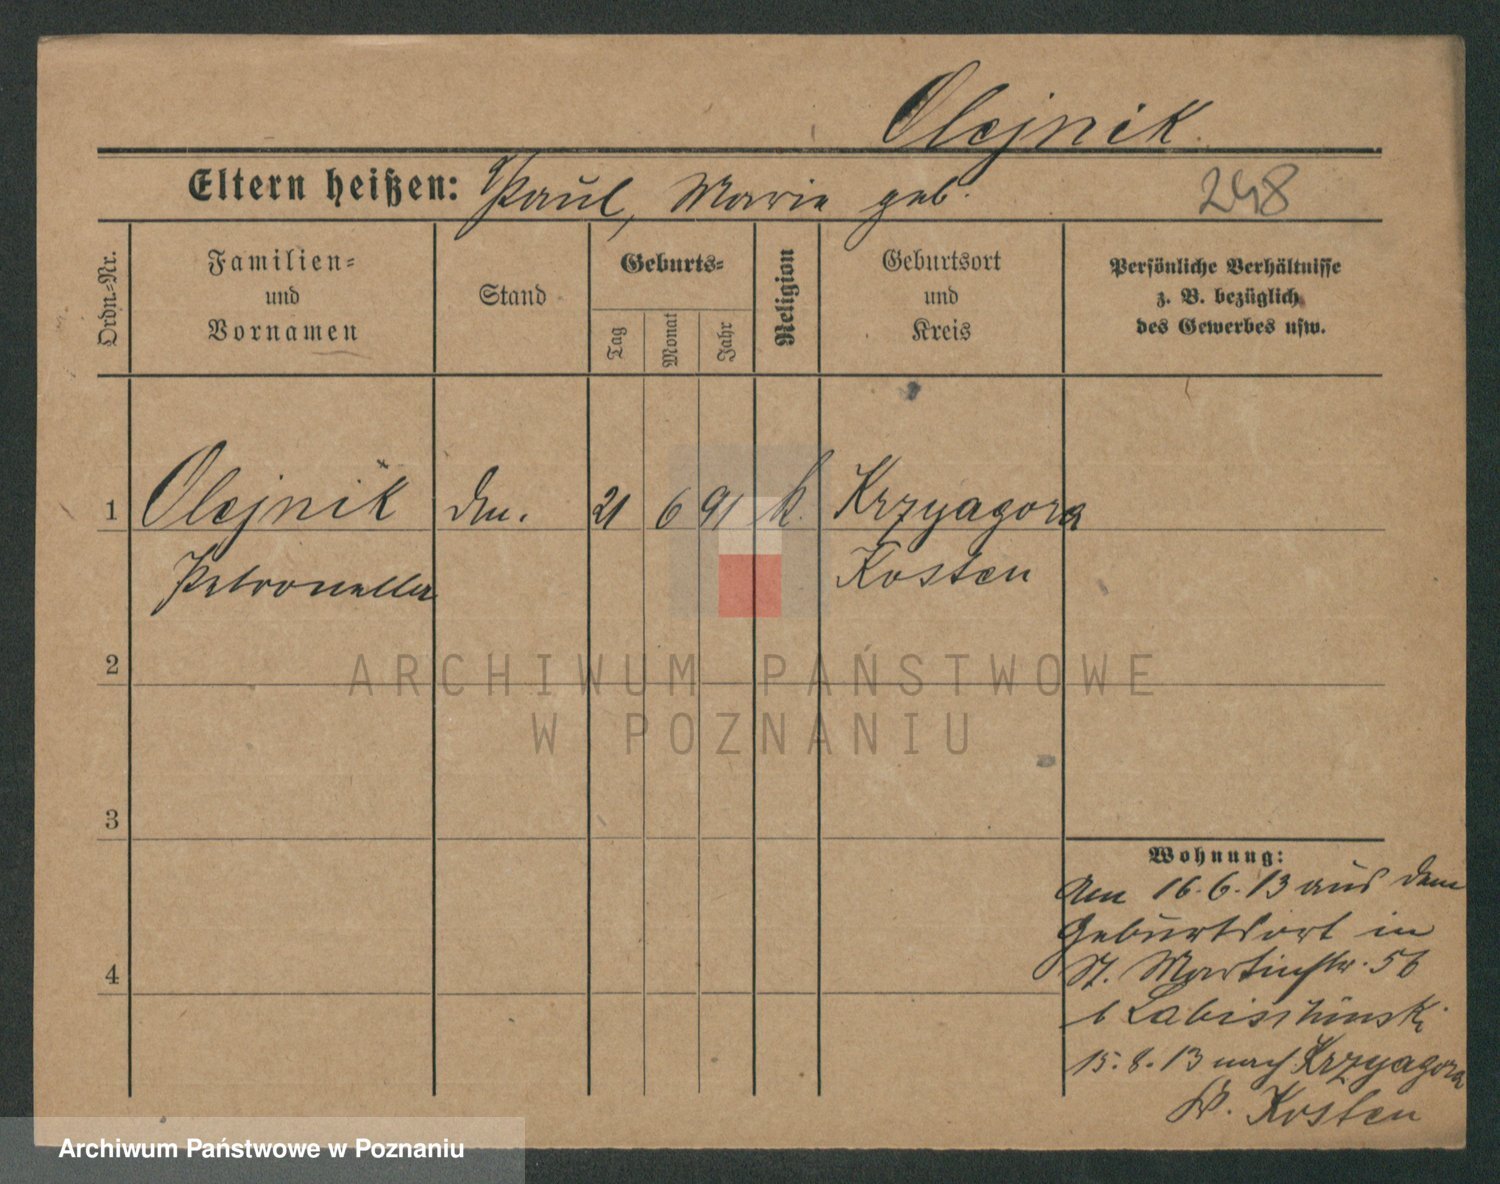 Olejnik.
Eltern heißen: Paul, Marie geb. 248
Ordn.=Nr.
Familien=
und
Vornamen
Stand
Geburts=
Tag
Monat
Jahr
Religion
Geburtsort
und
Kreis
Persönliche Verhältnisse
z. B. bezüglich
des Gewerbes usw.
1 Olejnik 21 6 91 k. Krzyagora
Petronella Kosten
2
3
4
Wohnung:
Am 16.6.13 aus dem
Geburtsort in
St. Martinstr. 56
b Labischinski
15.8.13 nach Krzyagora
Kosten
ARCHIWUM PAŃSTWOWE
W POZNANIU
Archiwum Państwowe w Poznaniu